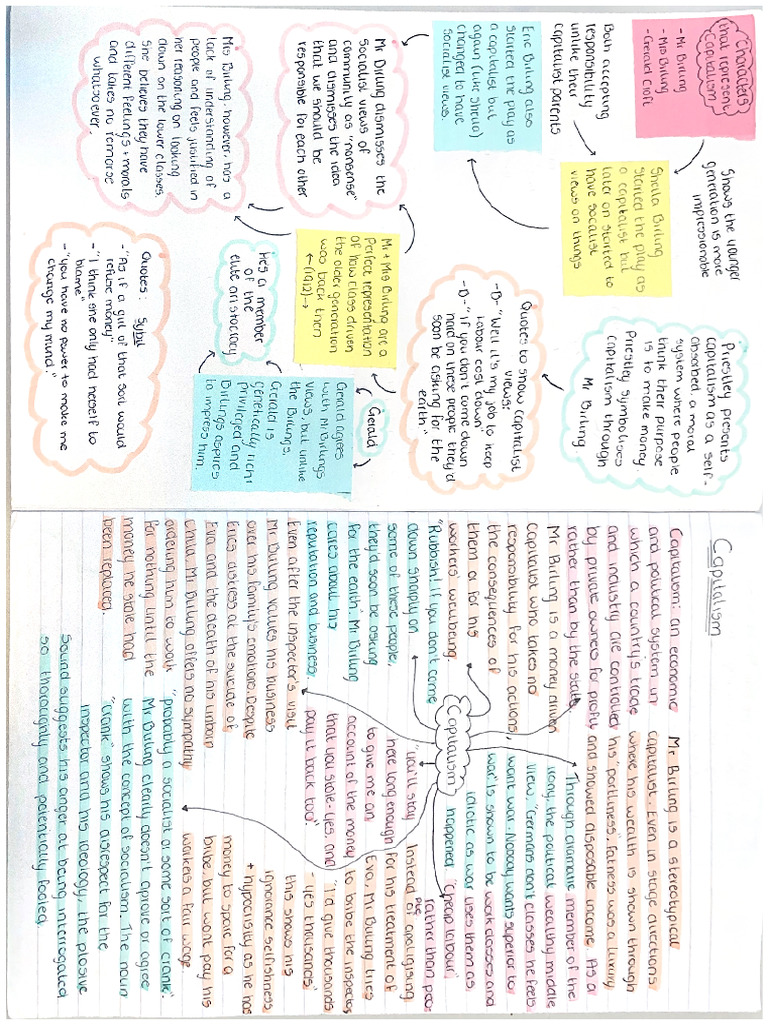 Characters
that represent
Capitalism
- Mr Birling
- Mrs Birling
- Gerald Croft
Shows the younger
generation is more
impressionable
Sheila Birling
started the play as
a capitalist but
later on started to
have socialist
views on things
Both accepting
responsibility
unlike their
capitalist parents
Eric Birling also
started the play as
a capitalist but
again (like Sheila)
changed to have
socialist views.
Mr Birling dismisses the
socialist views of
community as "nonsense"
and dismisses the idea
that we should be
responsible for each other
Mrs Birling, however, has a
lack of understanding of
people and feels justified in
her reasoning on looking
down on the lower classes.
She believes they have
different feelings + morals
and takes no remorse
whatsoever.
Priestley presents
capitalism as a self-
absorbed, a moral
system where people
think their purpose
is to make money.
Priestley symbolises
capitalism through
Mr Birling.
Quotes to show capitalist
views:
-B- "Well it's my job to keep
labour cost down"
-B- "if you don't come down
hard on these people, they'd
soon be asking for the
earth"
Mr + Mrs Birling are a
Perfect representation
of how class driven
the older generation
was back then
←(1912)→
Gerald
Gerald agrees
with Mr Birlings
views, but unlike
the Birlings,
Gerald is
genetically rich:
privileged and
Birlings aspires
to impress him.
He's a member
of the
elite aristocracy
Quotes: Sybil
- "As if a girl of that sort would
refuse money"
- "I think she only had herself to
blame"
- "you have no power to make me
change my mind."
Capitalism
Capitalism: an economic
and political system in
which a country's trade
and industry are controlled
by private owners for profit
rather than by the state
Mr Birling is a money driven
capitalist who takes no
responsibility for his actions,
the consequences of
them or for his
workers' wellbeing.
"Rubbish! If you don't come
down sharply on
some of these people,
they'd soon be asking
for the earth". Mr Birling
cares about his
reputation and business.
Even after the inspector's visit
Mr Birling values his business
over his family's emotions. Despite
Erics distress at the suicide of
Eva and the death of his unborn
child, Mr Birling offers no sympathy
ordering him to work
for nothing until the
money he stole had
been replaced.
Capitalism
Mr Birling is a stereotypical
Capitalist. Even in stage directions
where his wealth is shown through
his "portliness", fatness was a luxury
and showed disposable income. As a
wealthy middle member of the
classes he feels
superior to
work classes and
uses them as
"cheap labour"
rather than people
Through dramatic
irony, the political
view, "Germans don't
want war. Nobody wants
war" is shown to be
idiotic as war
happened
"you'll stay
here long enough
to give me an
account of the money
that you stole - yes, and
pay it back too".
Instead of apoligising
for his treatment of
Eva, Mr Birling tries
to bribe the inspector
"I'd give thousands
- yes thousands"
this shows his
ignorance selfishness
+ hypocrisy as he has
money to spare for a
bribe, but wont pay his
workers a fair wage
"probably a socialist or some sort of crank".
Mr Birling clearly doesn't aprove or agree
with the concept of socialism. The noun
"crank" shows his disrespect for the
inspector and his ideology, the plosive
Sound suggests his anger at being interrogated
so thoroughly and potentially fooled.